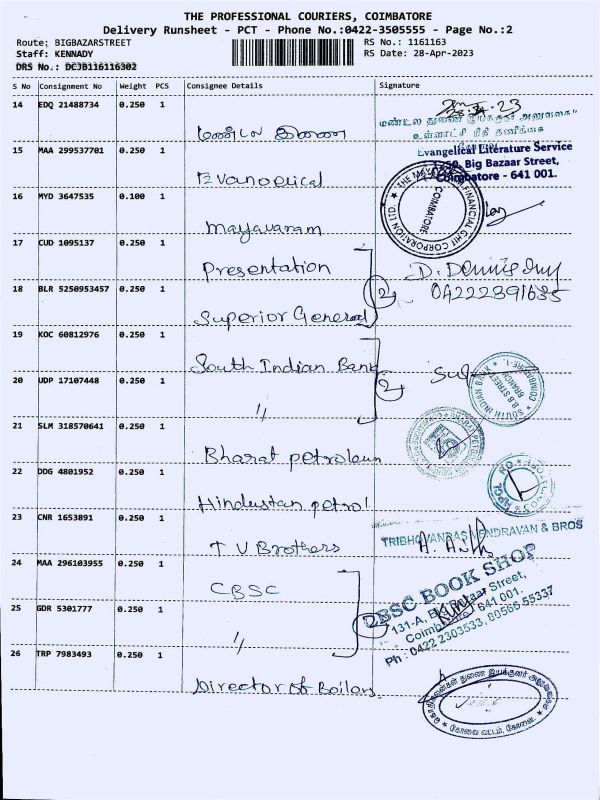 THE PROFESSIONAL COURIERS, COIMBATORE
Delivery Runsheet - PCT - Phone No.:0422-3505555 - Page No.:2
Route: BIGBAZARSTREET RS No.: 1161163
Staff: KENNADY RS Date: 28-Apr-2023
DRS No.: DCJB116116302
S No Consignment No Weight PCS Consignee Details Signature
14 EDQ 21488734 0.250 1
23
மண்டல துணை இயக்குநர் அலுவலகம்
உள்ளாட்சி நிதி தணிக்கை
கோவை
மண்டல இணை
15 MAA 299537701 0.250 1
Evangelical Literature Service
Big Bazaar Street,
Coimbatore - 641 001.
Evangelical
16 MYD 3647535 0.100 1
THE MAYAVARAM FINANCIAL CHIT CORPORATION LTD.
COIMBATORE
Mayavaram
17 CUD 1095137 0.250 1
Presentation
D. Dennis
04222391635
2
18 BLR 5250953457 0.250 1
Superior General
19 KOC 60812976 0.250 1
South Indian Bank
2
SOUTH INDIAN BANK
B.B STREET
BRANCH
COIMBATORE-1
20 UDP 17107448 0.250 1
"
21 SLM 318570641 0.250 1
Bharat petroleum
22 DDG 4801952 0.250 1
Hindustan petrol
HPCL
23 CNR 1653891 0.250 1
TRIBHOVANDAS VENDRAVAN & BROS
T V Brothers
24 MAA 296103955 0.250 1
CBSC
CBSC BOOK SHOP
131-A, Big Bazaar Street,
Coimbatore - 641 001.
Ph : 0422 2303533, 80566 55337
2
25 GDR 5301777 0.250 1
"
26 TRP 7983493 0.250 1
Director of Boilers
கோவை வட்டம், கோவை.